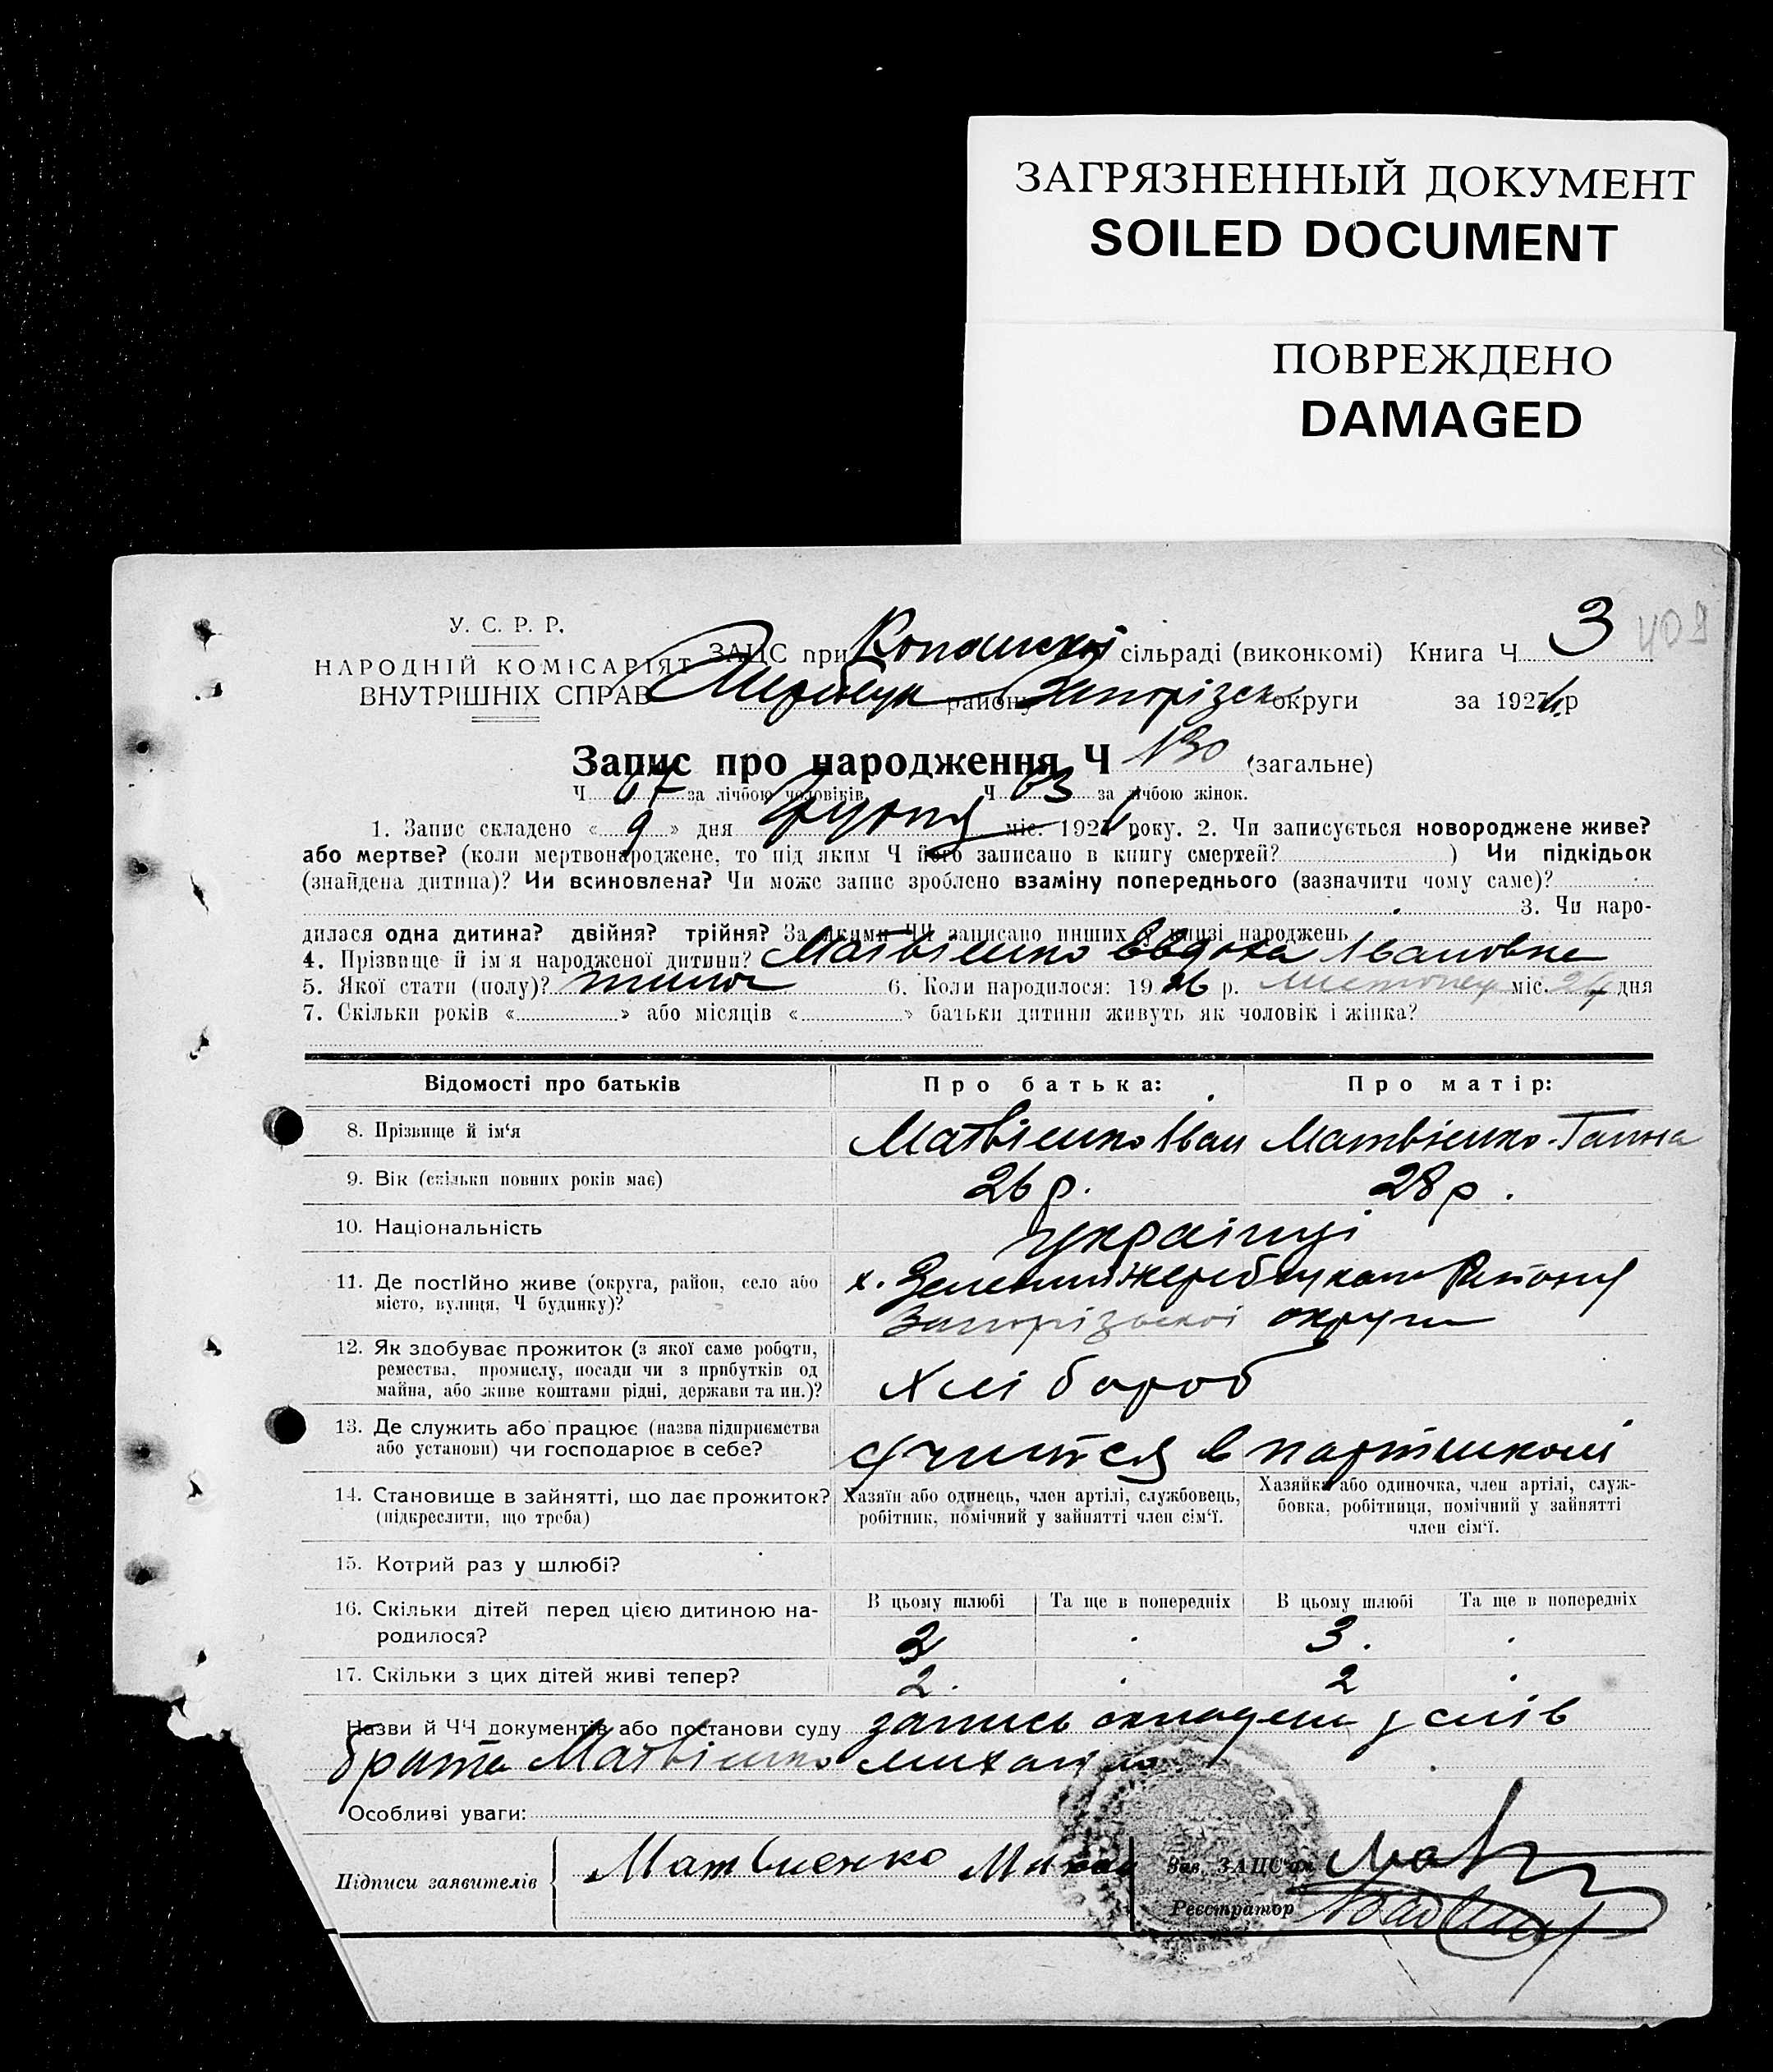 ЗАГРЯЗНЕННЫЙ ДОКУМЕНТ
SOILED DOCUMENT
ПОВРЕЖДЕНО
DAMAGED
У. С. Р. Р.
НАРОДНІЙ КОМІСАРІЯТ
ВНУТРІШНІХ СПРАВ
ЗАЦС при Копанської сільраді (виконкомі) Книга Ч. 3 409
району Запорізьк округи за 1926 р
Запис про народження Ч 130 (загальне)
Ч 67 за лічбою чоловіків Ч 63 за лічбою жінок.
1. Запис складено « 9 » дня Грудня міс. 1926 року. 2. Чи записується новороджене живе?
або мертве? (коли мертвонароджене, то під яким Ч його записано в книгу смертей? ) Чи підкідьок
(знайдена дитина)? Чи всиновлена? Чи може запис зроблено взаміну попереднього (зазначити чому саме)?
3. Чи наро-
дилася одна дитина? двійня? трійня? За якими ЧЧ записано инших у книзі народжень
4. Прізвище й ім'я народженої дитини? Матвієнко Евдокія Івановна
5. Якої стати (полу)? жіноч 6. Коли народилося: 1926 р. Листопад міс. 24 дня
7. Скільки років « » або місяців « » батьки дитини живуть як чоловік і жінка?
Відомості про батьків Про батька: Про матір:
8. Прізвище й ім'я Матвієнко Іван Матвієнко Ганна
9. Вік (скільки повних років має) 26 р. 28 р.
10. Національність українці
11. Де постійно живе (округа, район, село або
місто, вулиця, Ч будинку)?
х. Зелений Жеребецького Району
Запорізької округи
12. Як здобуває прожиток (з якої саме роботи,
ремества, промислу, посади чи з прибутків од
майна, або живе коштами рідні, держави та ин.)?
Хлібороб
13. Де служить або працює (назва підприємства
або установи) чи господарює в себе?
учится в партшколі
14. Становище в зайнятті, що дає прожиток?
(підкреслити, що треба)
Хазяїн або одинець, член артілі, службовець,
робітник, помічний у зайнятті член сім'ї.
Хазяйка або одиночка, член артілі, служ-
бовка, робітниця, помічний у зайнятті
член сім'ї.
15. Котрий раз у шлюбі?
16. Скільки дітей перед цією дитиною на-
родилося?
В цьому шлюбі Та ще в попередніх В цьому шлюбі Та ще в попередніх
3 3.
17. Скільки з цих дітей живі тепер? 2. 2
Назви й ЧЧ документів або постанови суду запись складена з слів
брата Матвієнко Михайло
Особливі уваги:
Підписи заявителів Матвиенко Михаил
Зав. ЗАЦС'ом
Реєстратор